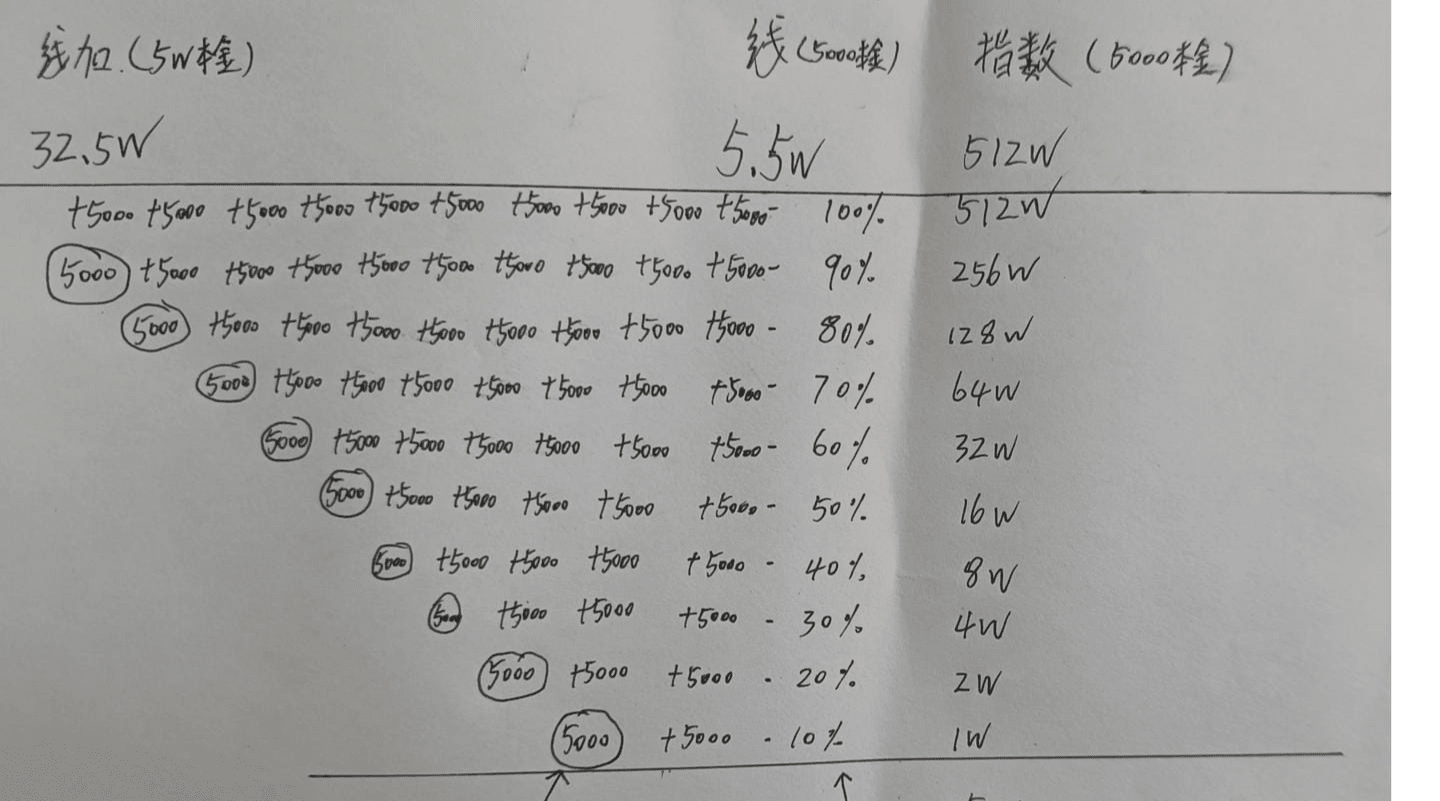 线加.(5W本金) 线(5000本金) 指数(5000本金)
32.5W 5.5W 512W
+5000 +5000 +5000 +5000 +5000 +5000 +5000 +5000 +5000 +5000- 100% 512W
5000 +5000 +5000 +5000 +5000 +5000 +5000 +5000 +5000 +5000- 90% 256W
5000 +5000 +5000 +5000 +5000 +5000 +5000 +5000 +5000 - 80% 128W
5000 +5000 +5000 +5000 +5000 +5000 +5000 +5000- 70% 64W
5000 +5000 +5000 +5000 +5000 +5000 +5000- 60% 32W
5000 +5000 +5000 +5000 +5000 +5000- 50% 16W
5000 +5000 +5000 +5000 +5000 - 40% 8W
5000 +5000 +5000 +5000 - 30% 4W
5000 +5000 +5000 - 20% 2W
5000 +5000 - 10% 1W